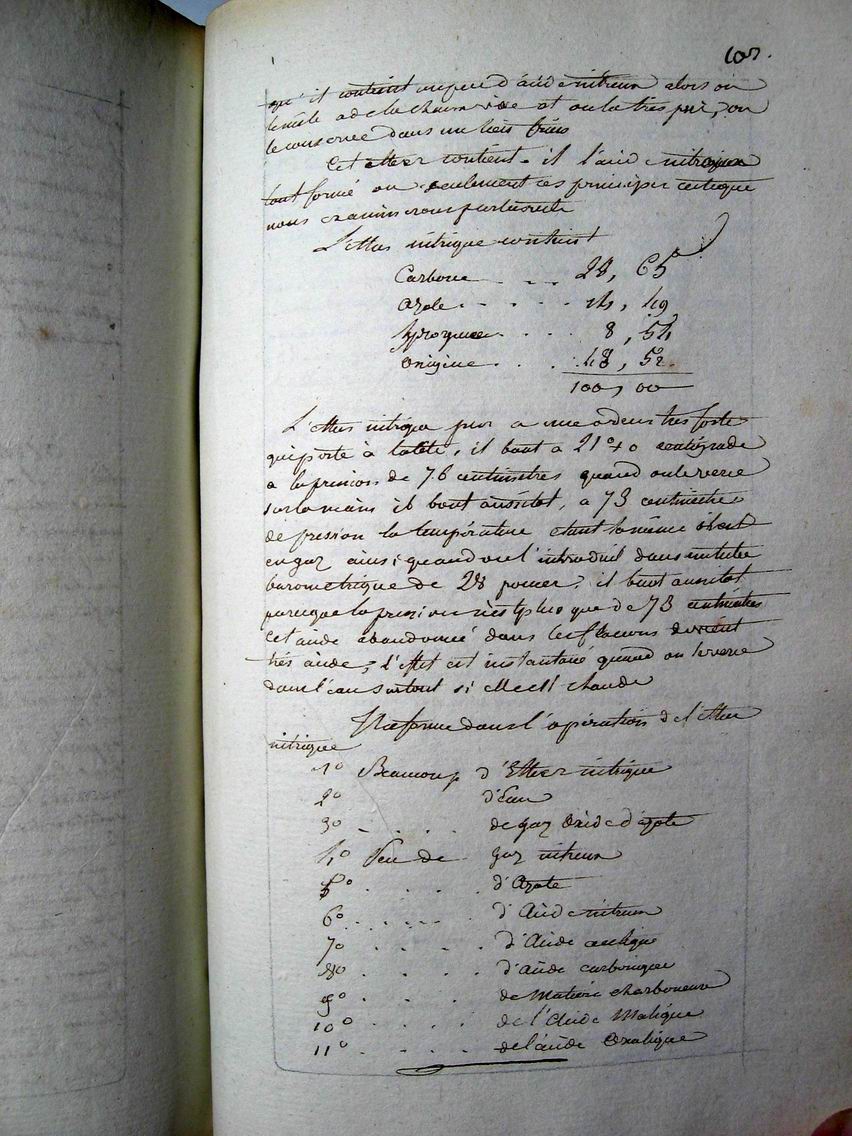 qu'il contient un peu d'acide nitreux alors on
le mêle a de la chaux vive et on l'a très pur, on
le conserve dans un lieu frais
Cet ether contient-il l'acide nitrique
tout formé ou seulement ses principes c'est ce que
nous examinerons par la suite
L'ether nitrique contient
Carbone - - - 28, 65
azote - - - - 14, 49
hydrogene - - - 8, 54
oxigine - - - 48, 52
100, 00
L'ether nitrique pur a une odeur très forte
qui porte à la tête, il bout a 21° + 0 centigrade
a la pression de 76 centimetres quand on le verse
sur la main il bout aussitot, a 73 centimetres
de pression la température etant la même il est
en gaz ainsi quand on l'introduit dans un tube
barometrique de 28 pouces, il bout aussitot
parceque la pression n'est plus que de 73 centimetres
cet acide abandonné dans les flacons devient
très acide, l'effet est instantané quand on le verse
dans l'eau surtout si elle est chaude
Il se forme dans l'opération de l'ether
nitrique
1° Beaucoup d'Ether nitrique
2° d'Eau
3° - . . . de gaz Oxide d'azote
4° Peu de gaz nitreux
5° . . . . d'Azote
6° . . . . d'Acide nitreux
7° . . . . d'Acide acetique
8° . . . . d'acide carbonique
9° . . . . de Matière charboneuse
10° . . . . de l'Acide Malique
11° . . . . de l'acide Oxalique